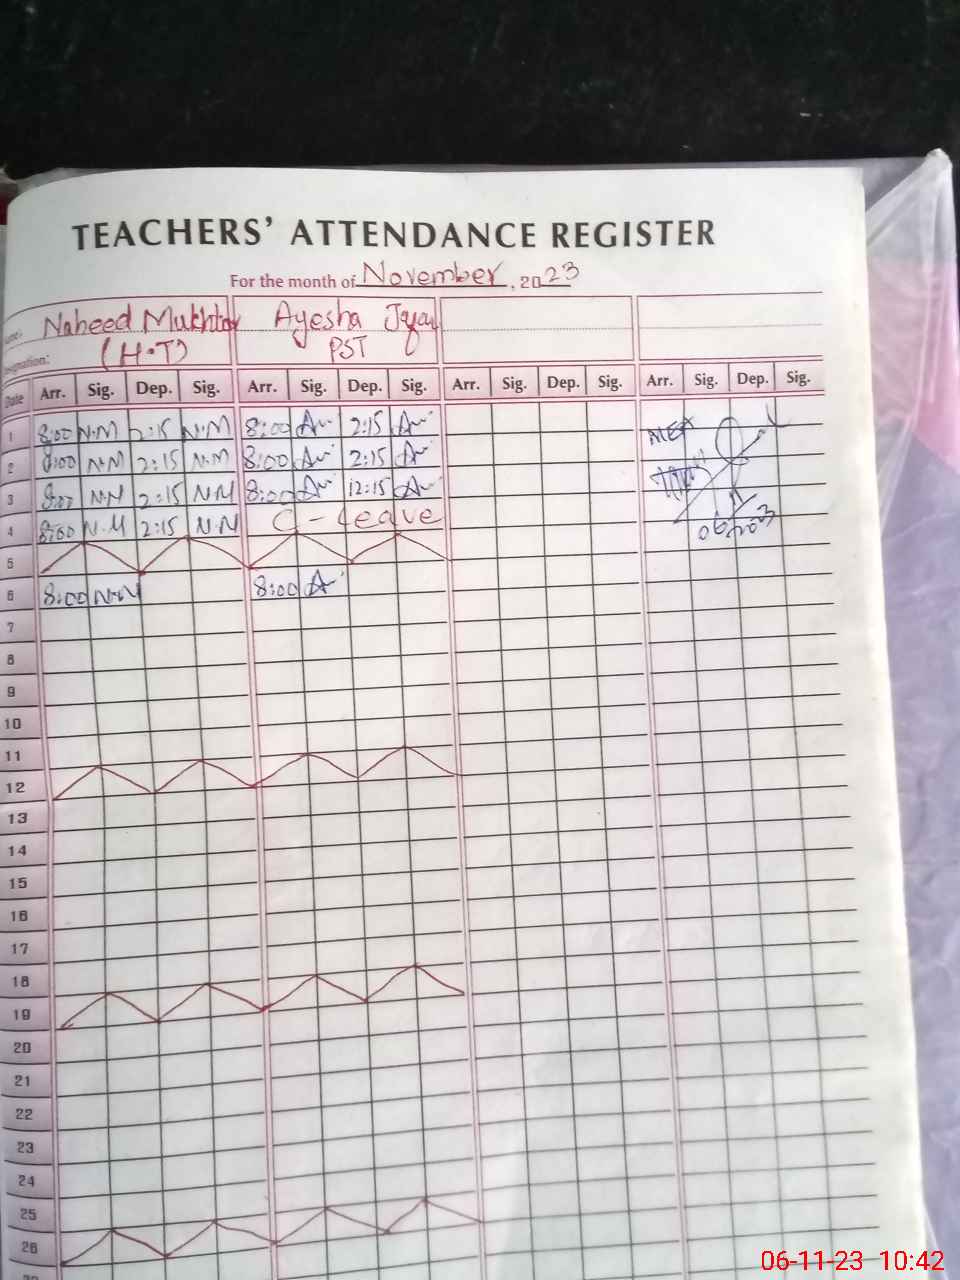 TEACHERS' ATTENDANCE REGISTER
For the month of November, 2023
Name: Naheed Mukhtar Ayesha
Designation: (H.T) PST
Date Arr. Sig. Dep. Sig. Arr. Sig. Dep. Sig. Arr. Sig. Dep. Sig. Arr. Sig. Dep. Sig.
1 8:00 N.M 2:15 N.M 8:00 2:15
2 8:00 N.M 2:15 N.M 8:00 2:15
3 8:00 N.M 2:15 N.M 8:00 12:15
4 8:00 N.M 2:15 N.N C-leave
5
6 8:00 N.M 8:00
7
8
9
10
11
12
13
14
15
16
17
18
19
20
21
22
23
24
25
26
06-11-23 10:42